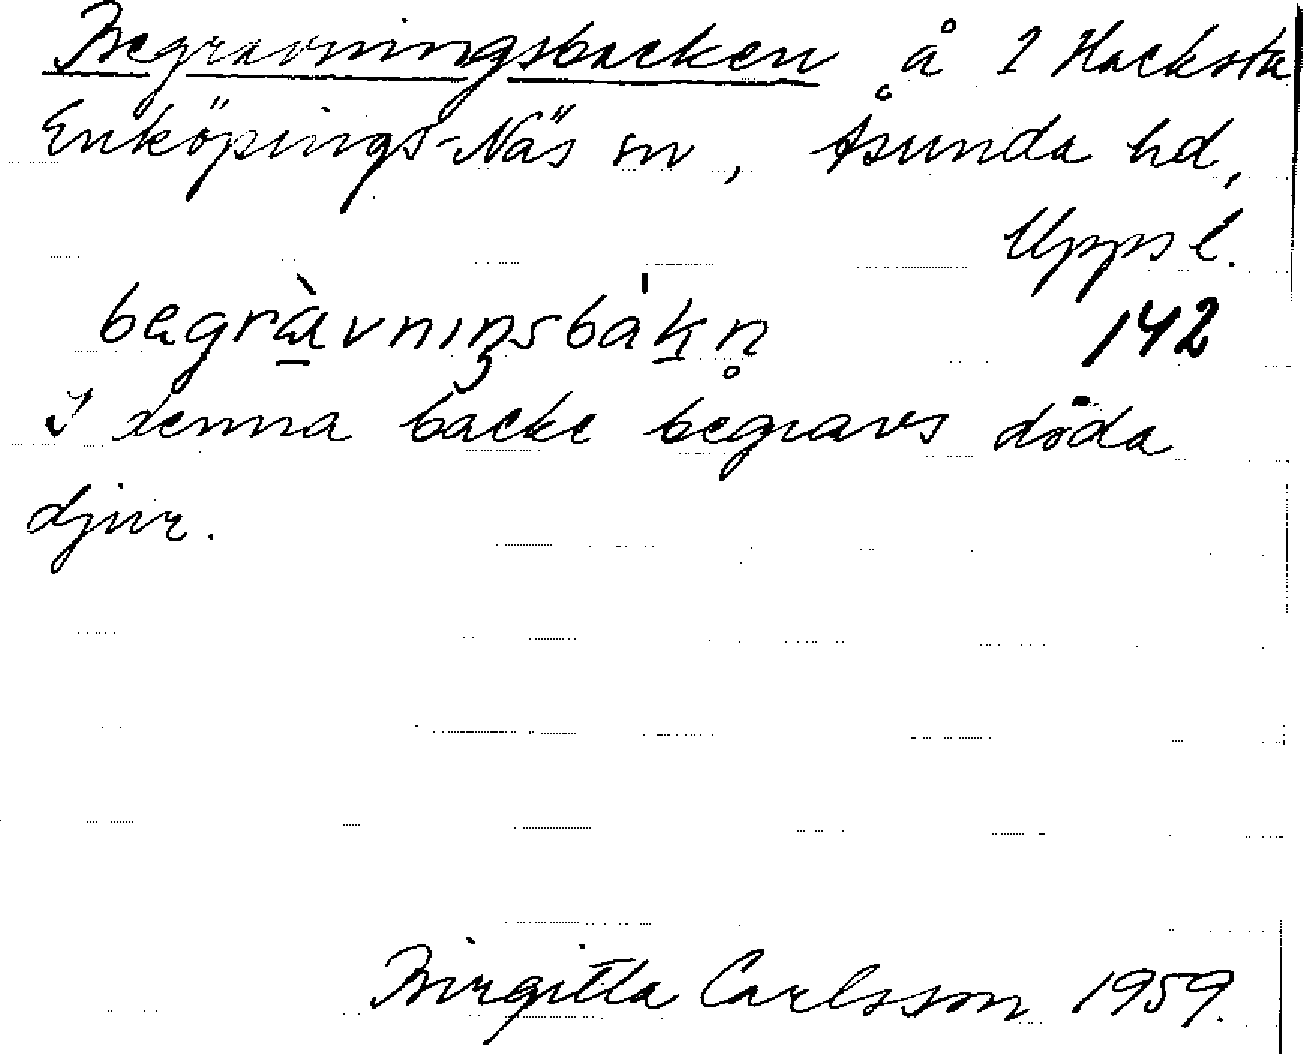 Begravningsbacken å 2 Hacksta
Enköpings-Näs sn, Åsunda hd,
Uppsl.
begràvnıŋsbákn̥ 142
I denna backe begravs döda
djur.
Birgitta Carlsson 1959.